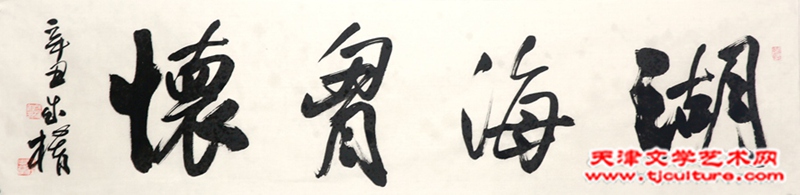 湖海胷懷
辛丑
天津文学艺术网
www.tjculture.com